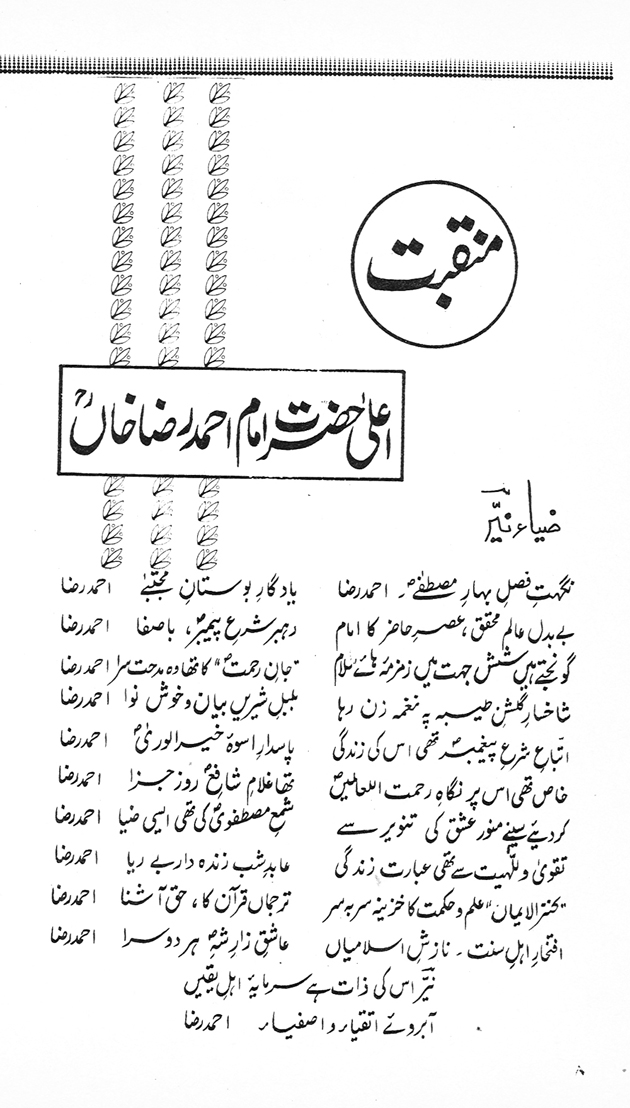 منقبت
اعلیٰ حضرت امام احمد رضا خاںؒ
ضیاء نیّر
نگہتِ فصلِ بہارِ مصطفٰےؐ۔ احمد رضا یادگارِ بوستانِ مجتبٰے احمد رضا
بے بدل عالم محقق، عصرِ حاضر کا امام رہبرِ شرعِ پیمبرؐ، باصفا احمد رضا
گونجتے ہیں شش جہت میں زمزمہ ہائے سلام "جانِ رحمتؐ" کا تھا وہ مدحت سرا احمد رضا
شاخسارِ گلشنِ طیبہ پہ نغمہ زن رہا بلبلِ شیریں بیان و خوش نوا احمد رضا
اتباعِ شرعِ پیغمبرؐ تھی اس کی زندگی پاسدارِ اسوۂ خیر الوریٰؐ احمد رضا
خاص تھی اس پر نگاہِ رحمت اللعالمیںؐ تھا غلامِ شافعِؐ روزِ جزا احمد رضا
کر دیئے سینے منور عشق کی تنویر سے شمعِ مصطفویؐ کی تھی ایسی ضیا احمد رضا
تقویٰ و للّٰہیت سے تھی عبارت زندگی عابدِ شب زندہ دار بے ریا احمد رضا
"کنز الایمان" علم و حکمت کا خزینہ سربہ سر ترجماں قرآن کا، حق آشنا احمد رضا
افتخارِ اہلِ سنت۔ نازشِ اسلامیاں عاشقِ زارِ شہِؐ ہر دوسرا احمد رضا
نیّر اس کی ذات ہے سرمایۂ اہلِ یقیں
آبروئے اتقیاء و اصفیاء احمد رضا
۸